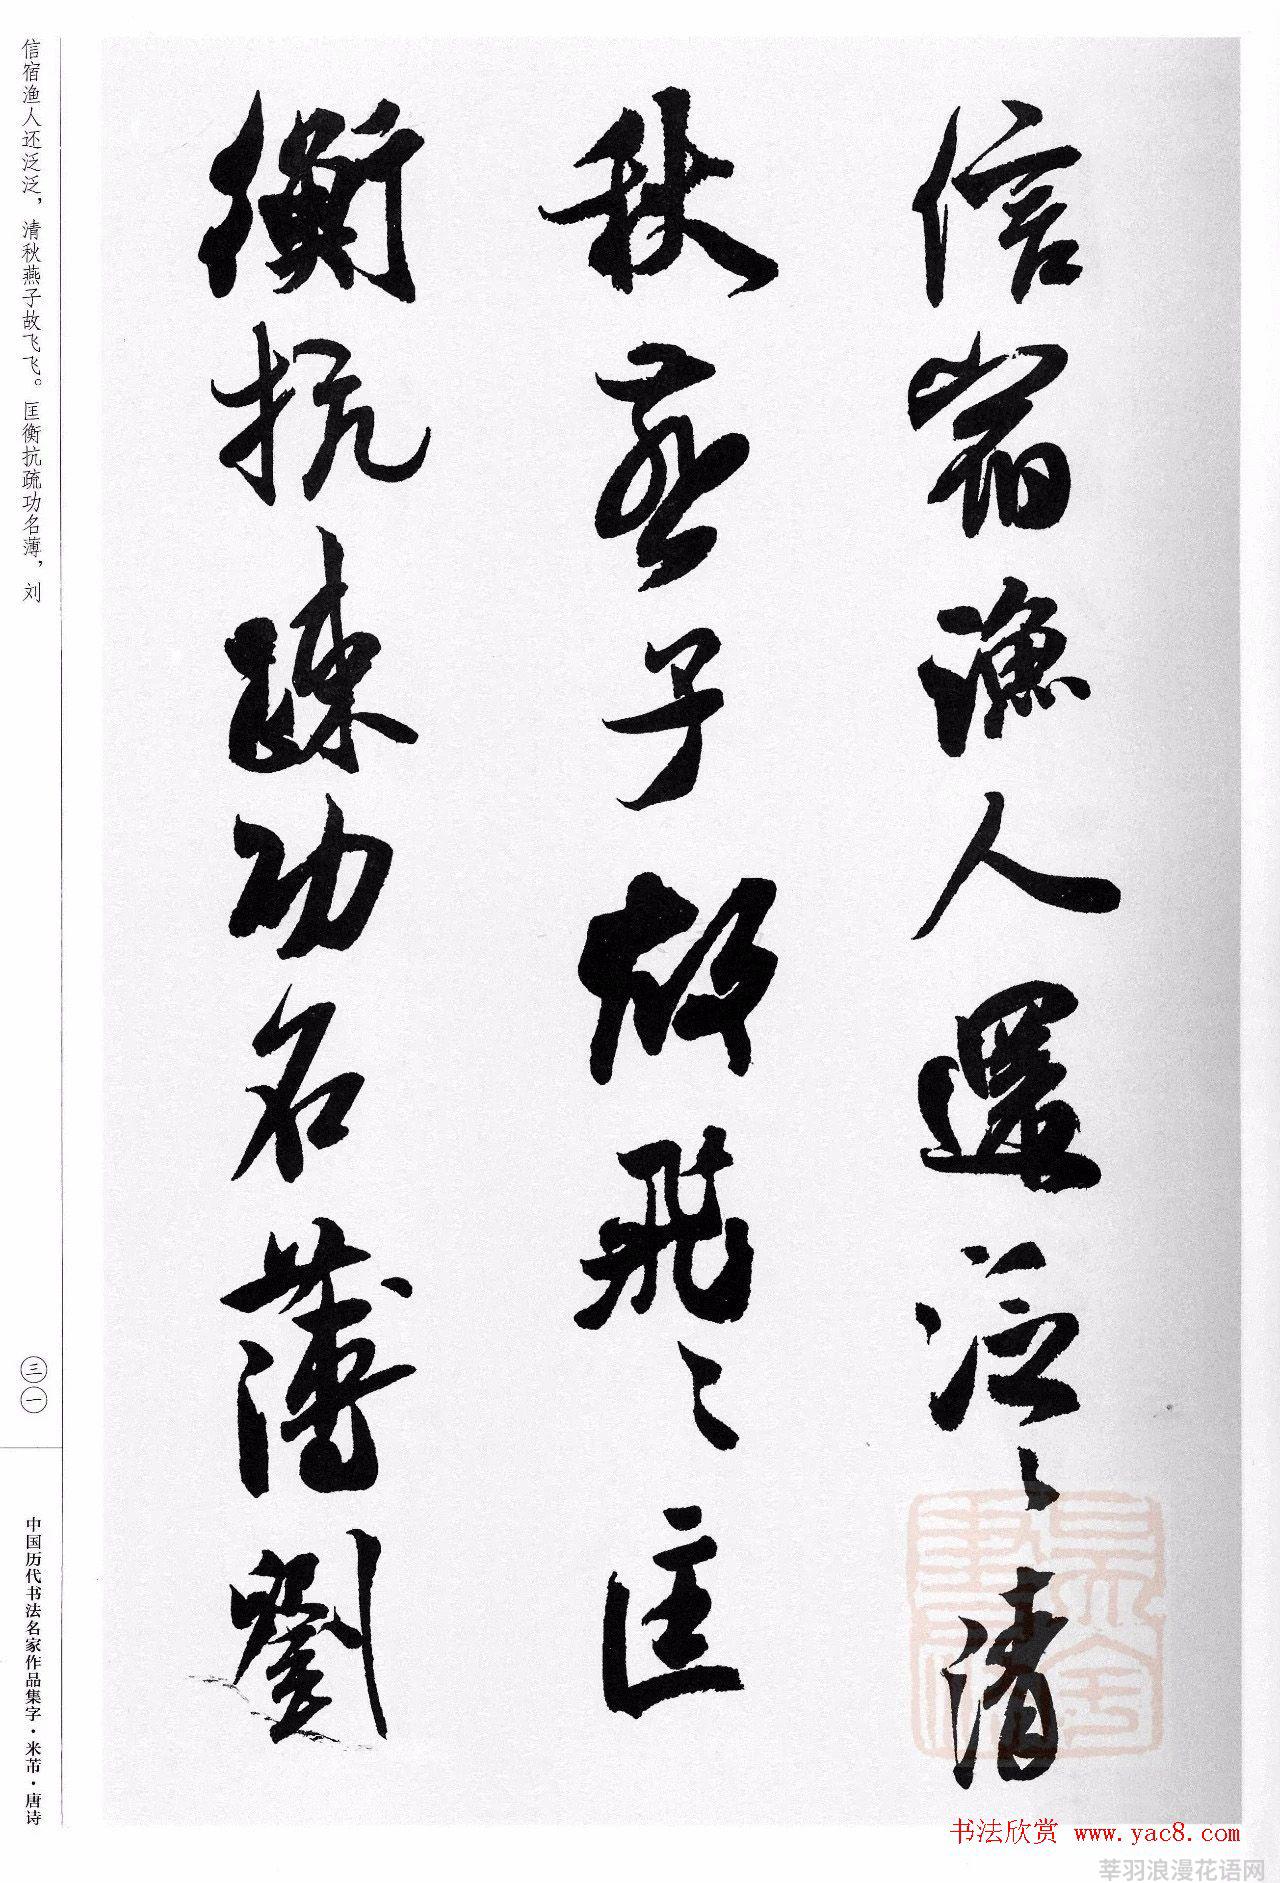 信宿漁人還泛〻清
秋燕子故飛〻匡
衡抗疏功名薄劉
信宿渔人还泛泛，清秋燕子故飞飞。匡衡抗疏功名薄，刘
三一
中国历代书法名家作品集字·米芾·唐诗
书法欣赏 www.yac8.com
莘羽浪漫花语网